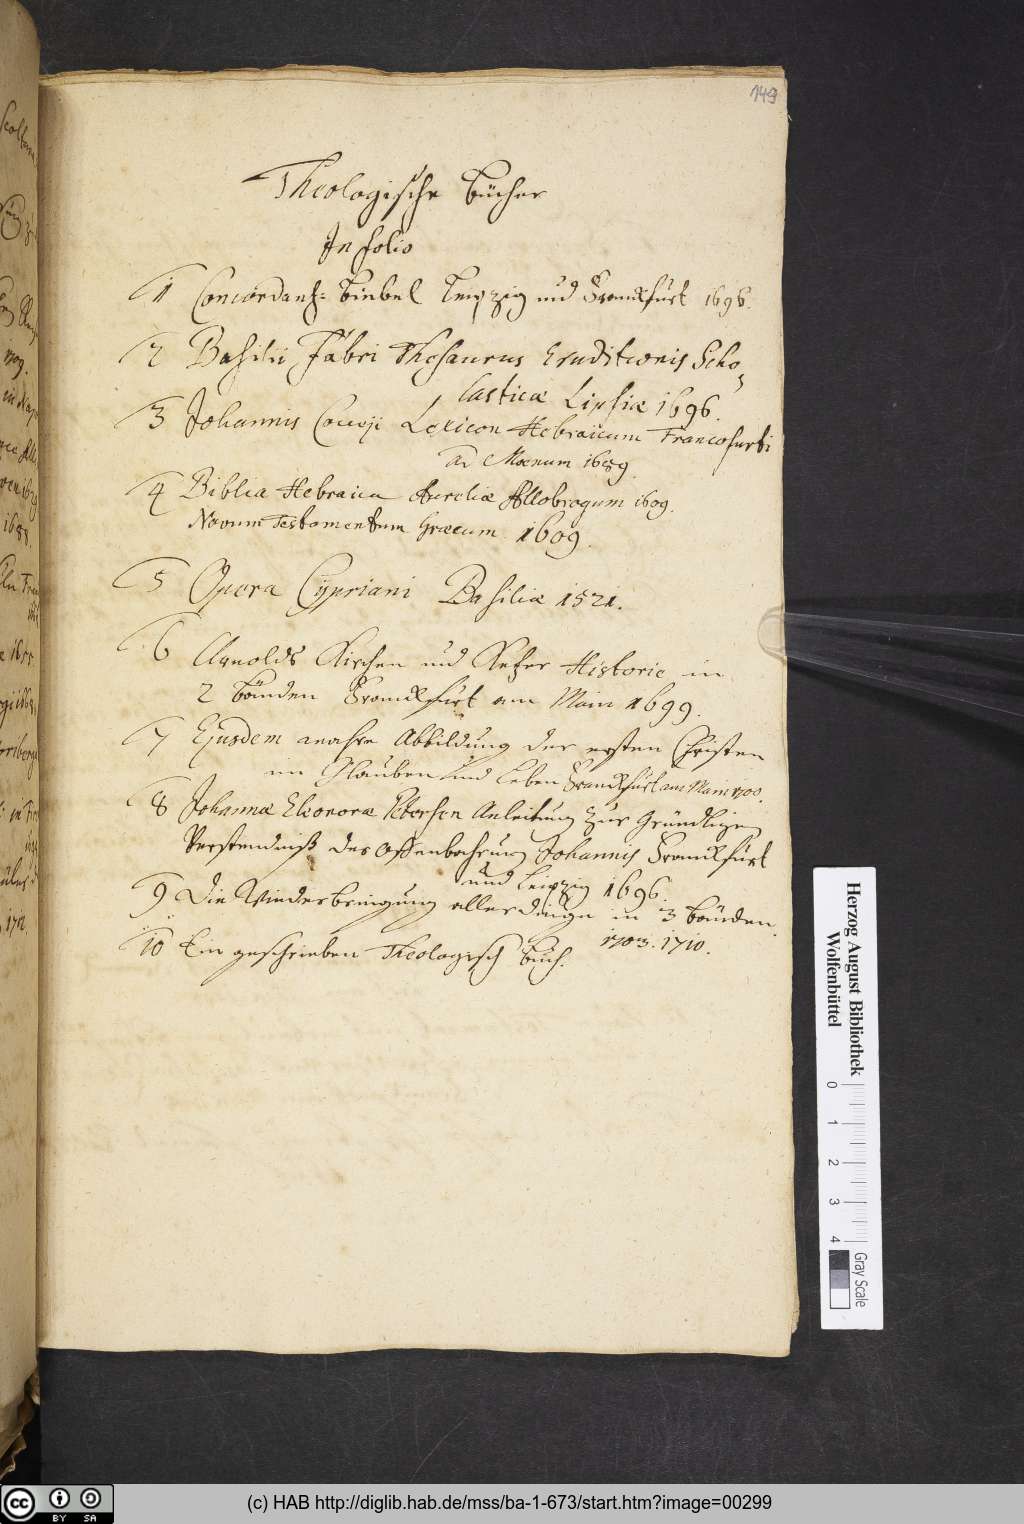 149
Theologische Bücher
In folio
1 Concordantz: Biebel Leipzig und Franckfurt 1696.
2 Basilii Fabri Thesaurus Eruditionis Scho-
lasticæ Lipsiæ 1696.
3 Johannis Cocceji Lexicon Hebraicum Francofurti
ad Moenum 1689.
4 Biblia Hebraica Aureliæ Allobrogum 1609.
Novum Testamentum Græcum 1609.
5 Opera Cypriani Basiliæ 1521.
6 Arnolds Kirchen und Ketzer Historie in
2 Bänden Franckfurt am Main 1699.
7 Ejusdem wahre Abbildung der ersten Christen
im Glauben und Leben Franckfurt am Main 1700.
8 Johannæ Eleonoræ Petersen Anleitung zur Gründlichen
Verständniß der Offenbahrung Johannis Franckfurt
und Leipzig 1696.
9 Die Wiederbringung aller dinge in 3 Bänden.
1703. 1710.
10 Ein geschrieben Theologisch Buch.
Herzog August Bibliothek
Wolfenbüttel
0 1 2 3 4
Gray Scale
cc BY SA
(c) HAB http://diglib.hab.de/mss/ba-1-673/start.htm?image=00299